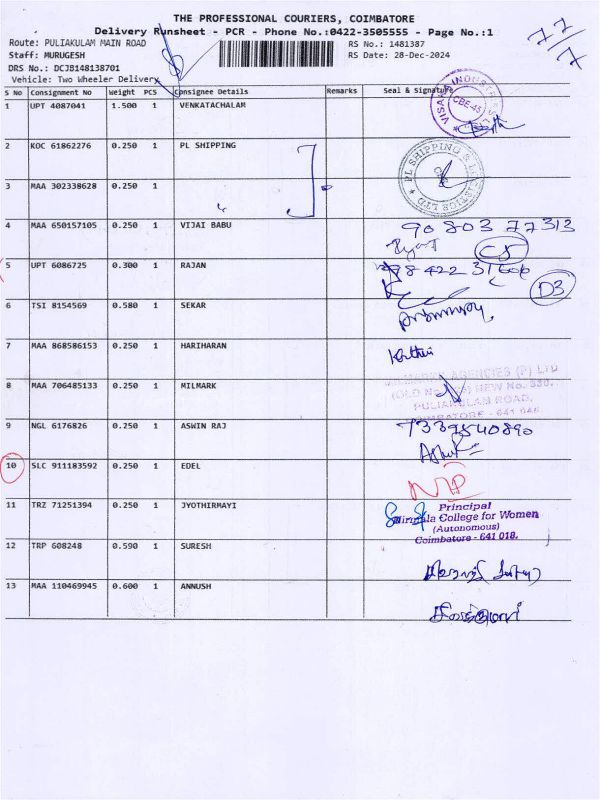 THE PROFESSIONAL COURIERS, COIMBATORE
Delivery Runsheet - PCR - Phone No.:0422-3505555 - Page No.:1
Route: PULIAKULAM MAIN ROAD RS No.: 1481387
Staff: MURUGESH RS Date: 28-Dec-2024
DRS No.: DCJB148138701
Vehicle: Two Wheeler Delivery
77/7
S No Consignment No Weight PCS Consignee Details Remarks Seal & Signature
1 UPT 4087041 1.500 1 VENKATACHALAM
CBE-45
2 KOC 61862276 0.250 1 PL SHIPPING
PL SHIPPING & LOGISTICS LTD
3 MAA 302338628 0.250 1
4 MAA 650157105 0.250 1 VIJAI BABU
90803 77313
C5
5 UPT 6086725 0.300 1 RAJAN
D3
6 TSI 8154569 0.580 1 SEKAR
7 MAA 868586153 0.250 1 HARIHARAN
8 MAA 706485133 0.250 1 MILMARK
AGENCIES (P) LTD
NEW No. 330,
PULIAKULAM ROAD,
COIMBATORE - 641 045
9 NGL 6176826 0.250 1 ASWIN RAJ
7339540890
10 SLC 911183592 0.250 1 EDEL
11 TRZ 71251394 0.250 1 JYOTHIRMAYI
Principal
Nirmala College for Women
(Autonomous)
Coimbatore - 641 018.
12 TRP 608248 0.590 1 SURESH
13 MAA 110469945 0.600 1 ANNUSH